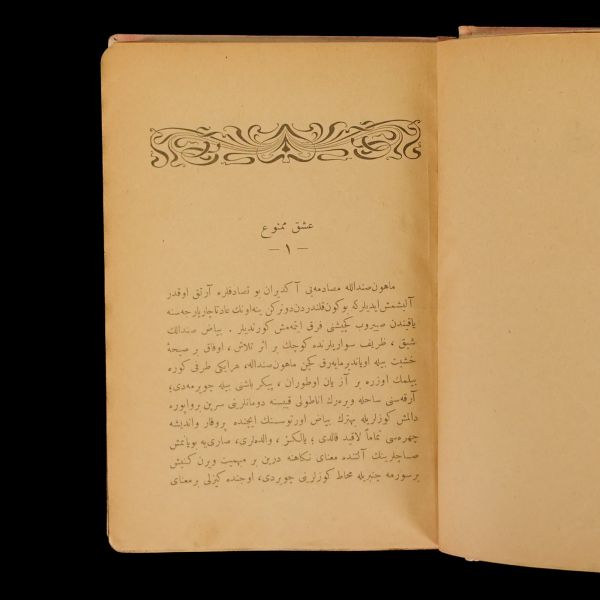 عشق ممنوع
— ١ —
ماهون صنداله مصادمه‌یی آ كدیران بو تصادفلره آرتق اوقدر
آلیشمش ایدیلركه بوكون قلندردن دونرکن ینه اونك عادتا چارپارجه‌سنه
یاقیندن صییروب كچیشنی فرق ایتمه‌مش كورندیلر . بیاض صندالك
شیق ، ظریف سواریلرنده كوچك بر اثر تلاش ، اوفاق بر صیحهٔ
خشیت بیله اویاندیرمایه‌رق كچن ماهون صنداله، هرایكی طرفی كوره
بیلمك اوزره بر آز یان اوطوران ، پیكر باشنی بیله چویرمه‌دی؛
آرقه‌سنی ساحله ویره‌رك اناطولی قییسنه دومانلرینی سرپن برواپوره
دالمش كوزلریله بهترك بیاض اورتوسنك ایچنده پروقار واندیشه
چهره‌سی تماماً لاقید قالدی ؛ یالكز ، والده‌لری، صاری‌یه بویانمش
صاچلرینك آلتنده معنای نكاهنه درین بر مبهمیت ویرن كنیش
برسورمه چنبریله محاط كوزلرینی چویردی، اوجنده كیزلی برمعنای